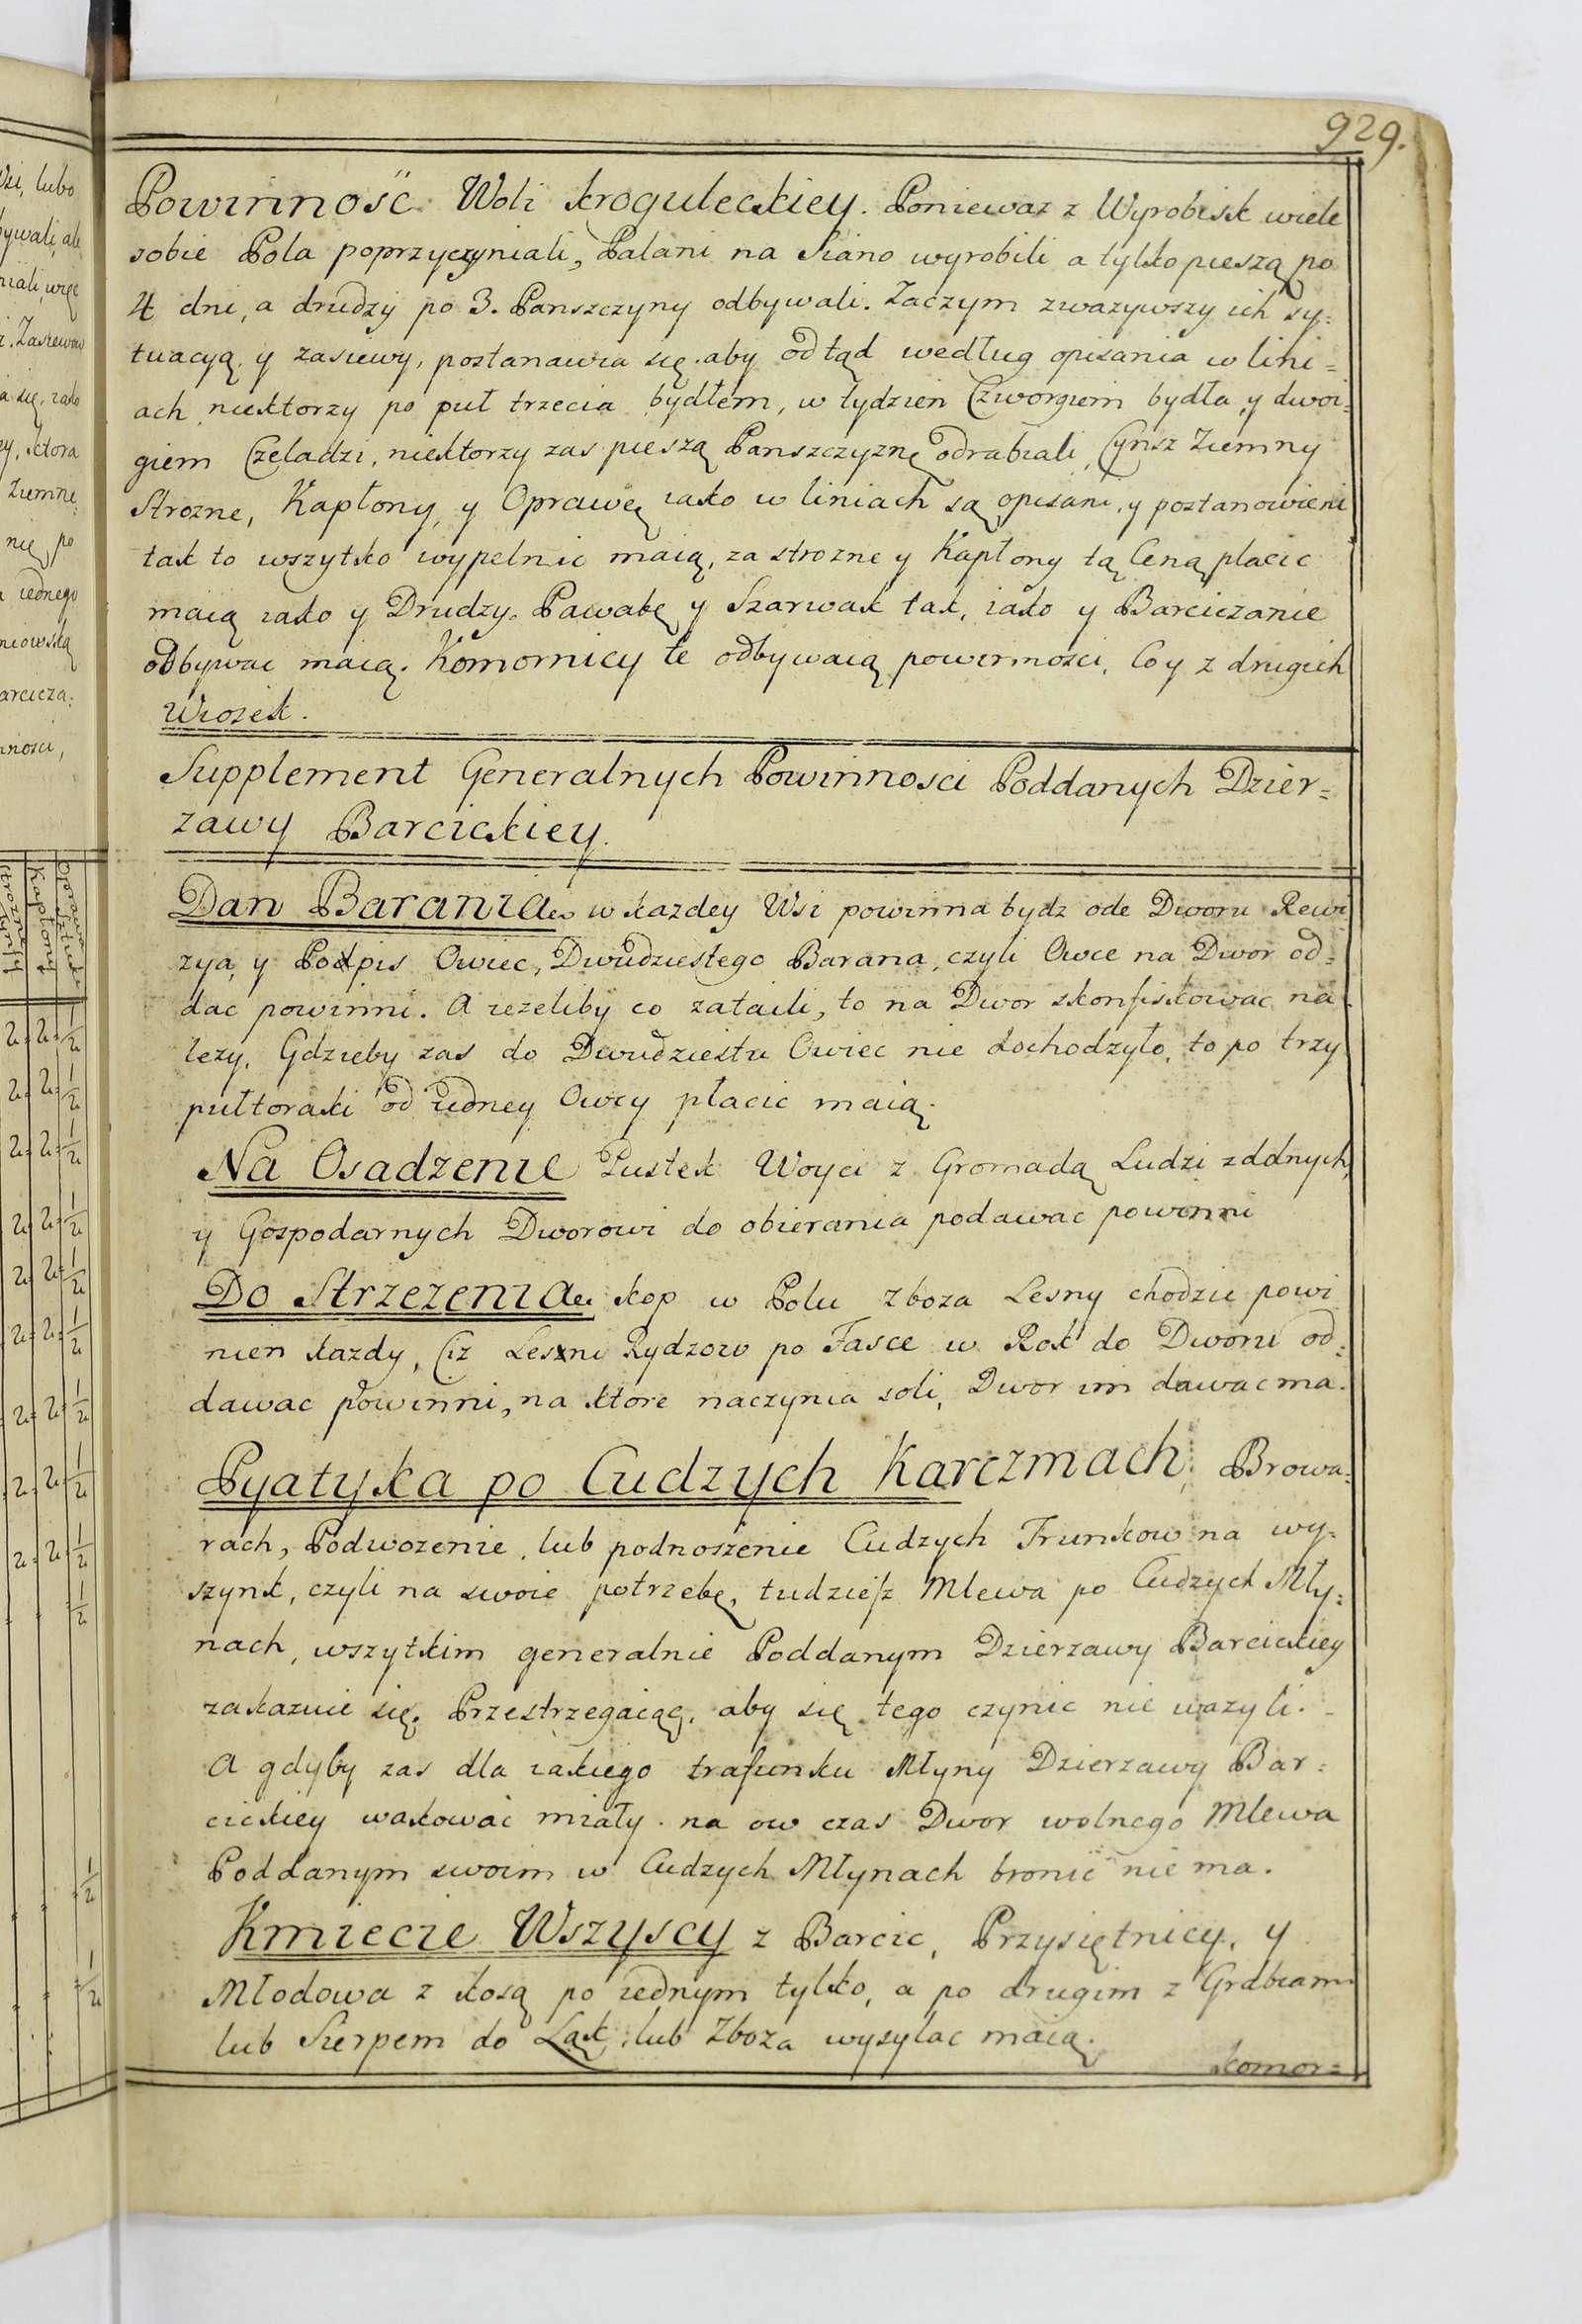 929.
Powinność Woli kroguleckiey. Poniewaz z Wyrobisk wiele
sobie Pola poprzyczyniali, Palani na Siano wyrobili a tylko pieszą po
4 dni, a drudzy po 3. Panszczyny odbywali. Zaczym zwazywszy ich sy=
tuacyą y zasiewy, postanawia się aby odtąd według opisania w lini=
ach niektorzy po puł trzecia bydłem, w tydzien Czworgiem bydła y dwoi=
giem Czeladzi, niektorzy zas pieszą Panszczyznę odrabiali, Cynsz Ziemny
Strozne, Kapłony y Oprawę iako w liniach są opisani, y postanowieni
tak to wszytko wypelnic maią, za strozne y Kapłony tą Ceną placic
maią iako y Drudzy. Pawabę y Szarwak tak, iako y Barciczanie
odbywac maią. Komornicy te odbywaią powinnosci, Co y z drugich
Wiosek.
Supplement Generalnych Powinnosci Poddanych Dzier=
zawy Barcickiey.
Dan Barania w kazdey Wsi powinna bydz ode Dworu Rewi
zya y Podpis Owiec, Dwudziestego Barana, czyli Owce na Dwor od=
dac powinni. A iezeliby co zataili, to na Dwor skonfiskowac na
lezy. Gdzieby zas do Dwudziestu Owiec nie dochodzyło, to po trzy
pułtoraki od iedney Owcy płacic maią.
Na Osadzenie Pustek Woyci z Gromadą Ludzi zddnych,
y Gospodarnych Dworowi do obierania podawac powinni
Do Strzezenia kop w Polu zboza Lesny chodzic powi
nien kazdy, Ciz Lesni Rydzow po Fasce w Rok do Dworu od=
dawac powinni, na ktore naczynia soli, Dwor im dawac ma.
Pyatyka po Cudzych Karczmach, Browa=
rach, Podwozenie, lub podnoszenie Cudzych Trunkow na wy=
szynk, czyli na swoie potrzebę, tudzież Mlewa po Cudzych Mły=
nach, wszytkim generalnie Poddanym Dzierzawy Barcickiey
zakazuie się. Przestrzegaiąc, aby się tego czynic nie wazyli.
A gdyby zas dla iakiego trafunku Młyny Dzierzawy Bar=
cickiey wakować miały na ow czas Dwor wolnego Mlewa
Poddanym swoim w Cudzych Młynach bronic nie ma.
Kmiecie Wszyscy z Barcic, Przysiętnicy, y
Młodowa z kosą po iednym tylko, a po drugim z Grabiami
lub Sierpem do Ląk, lub Zboza wysylac maią.
komor=